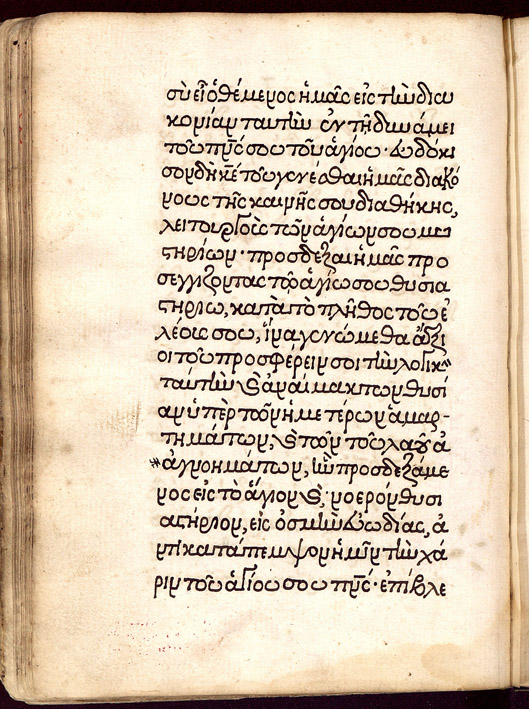 σὺ εἶ ὁ θέμενος ἡμᾶς εἰς τὴν δια
κονίαν ταύτην ἐν τῇ δυνάμει
τοῦ πνς σου τοῦ ἁγίου· εὐδόκη
σον δὴ κε τοῦ γενέσθαι ἡμᾶς διακό
νους τῆς καινῆς σου διαθήκης,
λειτουργοὺς τῶν ἁγίων σου μυ
στηρίων· προσδεξαι ἡμᾶς προ
σεγγίζοντας τῷ ἁγίῳ σου θυσια
στηρίω, κατὰ τὸ πλῆθος τοῦ ἐ
λέους σου, ἵνα γενώμεθα ἄξι
οι τοῦ προσφέρειν σοι τὴν λογικ
ταύτην καὶ ἀναίμακτον θυσί
αν ὑπὲρ τῶν ἡμετέρων ἁμαρ-
τημάτων, καὶ τῶν τοῦ λαοῦ ἀ
ἀγνοημάτων, ἣν προσδεξάμε
νος εἰς τὸ ἅγιον καὶ νοερόν θυσι
αστήριον, εἰς ὀσμὴν εὐωδίας, ἀ
ντικατάπεμψον ἡμῖν τὴν χά
ριν τοῦ ἁγίου σου πνς· ἐπίβλε